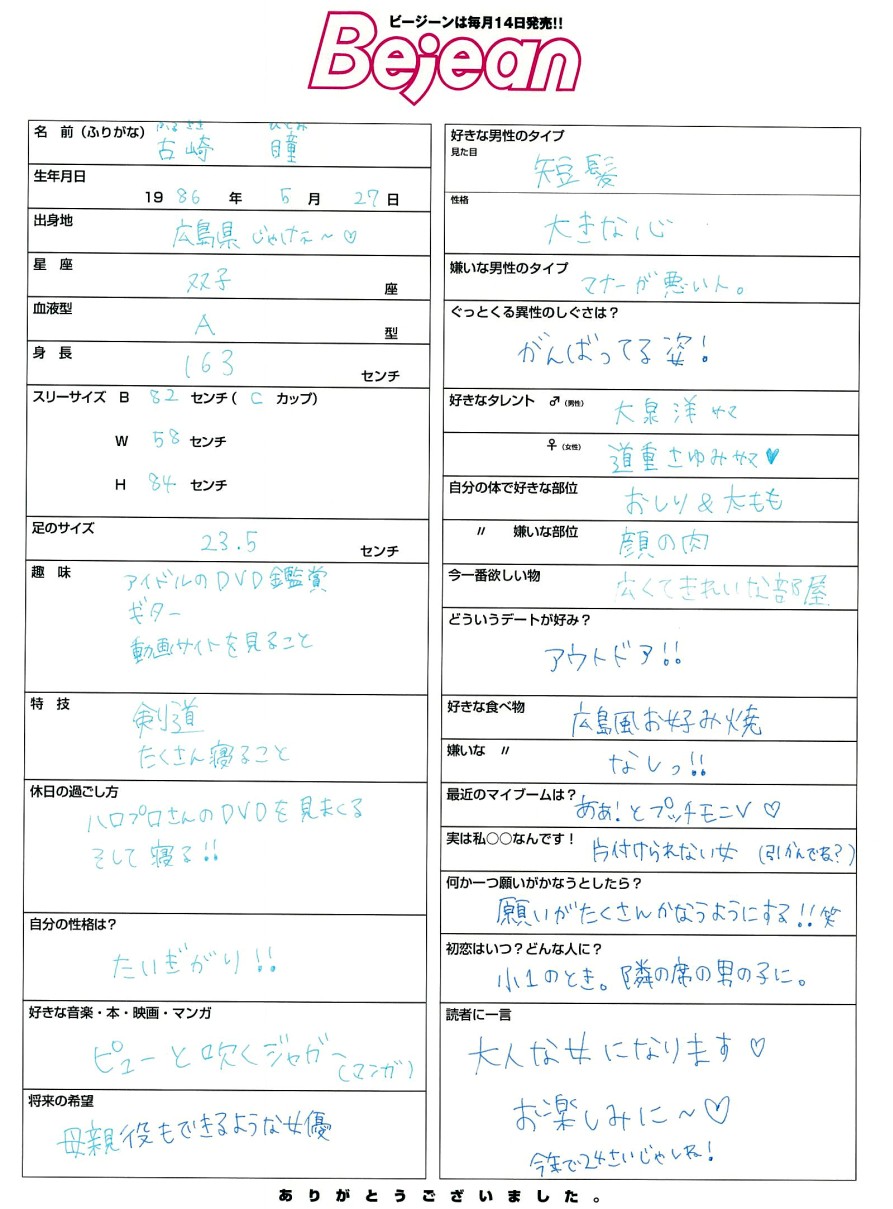 ビージーンは毎月14日発売!!
Bejean
名 前（ふりがな）
ふるさき ひとみ
古崎 瞳
生年月日
19 86 年 5 月 27 日
出身地
広島県 じゃけぇ～♡
星 座
双子 座
血液型
A 型
身 長
163 センチ
スリーサイズ B 82 センチ( C カップ)
W 58 センチ
H 84 センチ
足のサイズ
23.5 センチ
趣 味
アイドルのDVD鑑賞
ギター
動画サイトを見ること
特 技
剣道
たくさん寝ること
休日の過ごし方
ハロプロさんのDVDを見まくる
そして寝る!!
自分の性格は？
たいぎがり!!
好きな音楽・本・映画・マンガ
ピューと吹くジャガー
(マンガ)
将来の希望
母親役もできるような女優
好きな男性のタイプ
見た目
短髪
性格
大きな心
嫌いな男性のタイプ
マナーが悪い人。
ぐっとくる異性のしぐさは？
がんばってる姿!
好きなタレント ♂（男性） 大泉洋サマ
♀（女性） 道重さゆみサマ♥
自分の体で好きな部位
おしり＆太もも
〃 嫌いな部位
顔の肉
今一番欲しい物
広くてきれいな部屋
どういうデートが好み？
アウトドア!!
好きな食べ物
広島風お好み焼
嫌いな 〃
なしっ!!
最近のマイブームは？
あぁ!とプッチモニV ♡
実は私○○なんです！
片付けられない女 (引かんでね?)
何か一つ願いがかなうとしたら？
願いがたくさんかなうようにする!!笑
初恋はいつ？どんな人に？
小1のとき。隣の席の男の子に。
読者に一言
大人な女になります♡
お楽しみに～♡
今年で24さいじゃしね!
ありがとうございました。